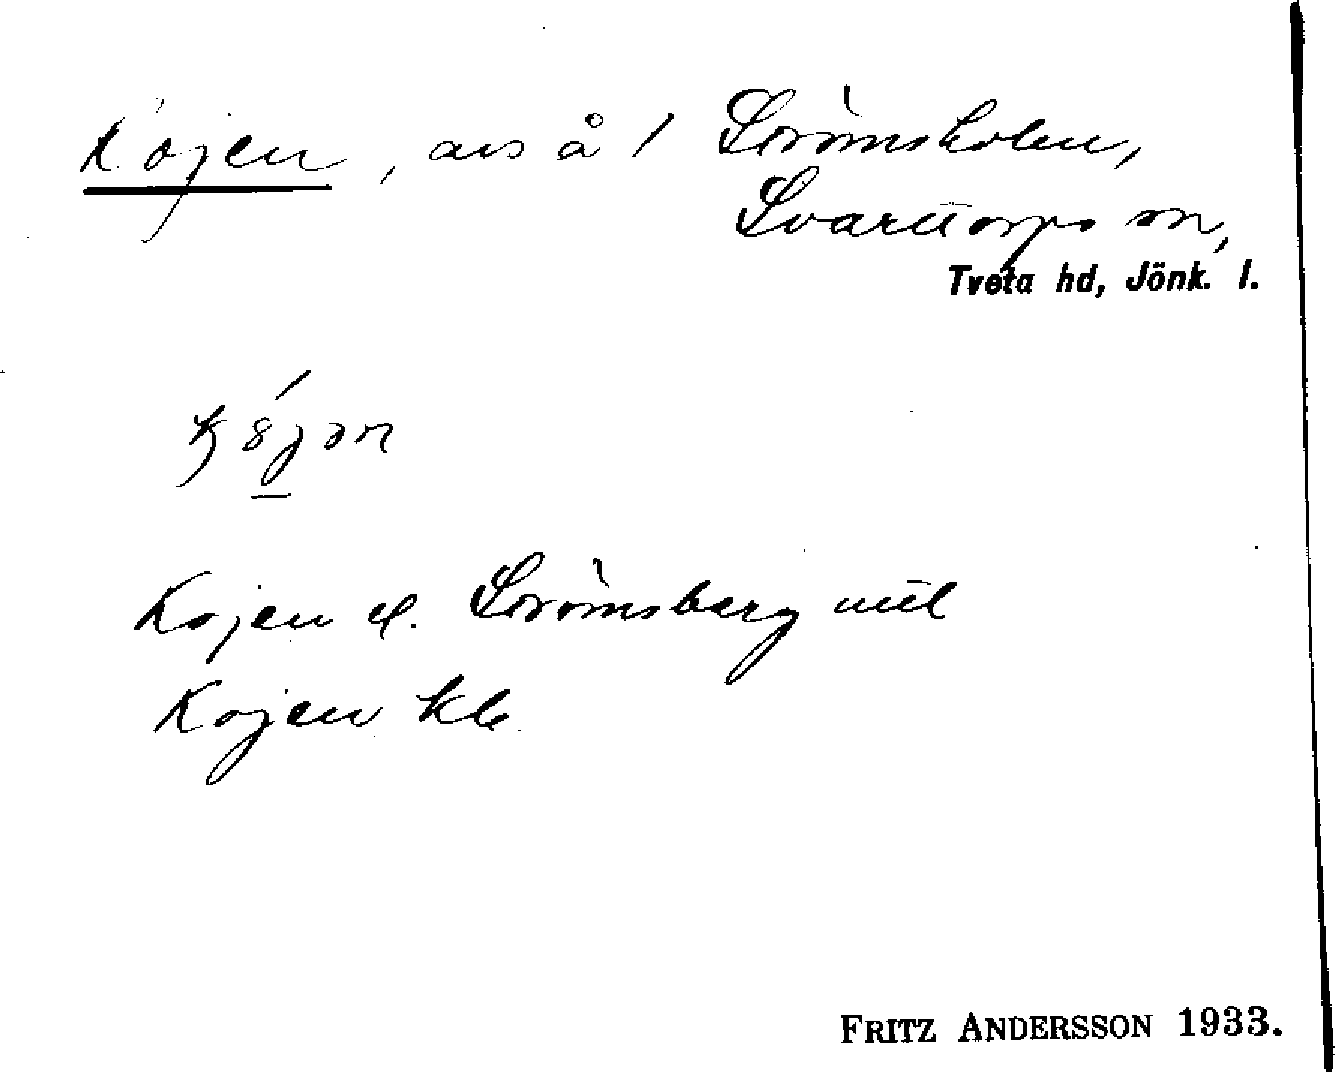 Kojen, avs å 1 Strömsholm,
Svarttorps sn,
Tveta hd, Jönk. l.
Kojen el. Strömsberg
Kojen kb
FRITZ ANDERSSON 1933.